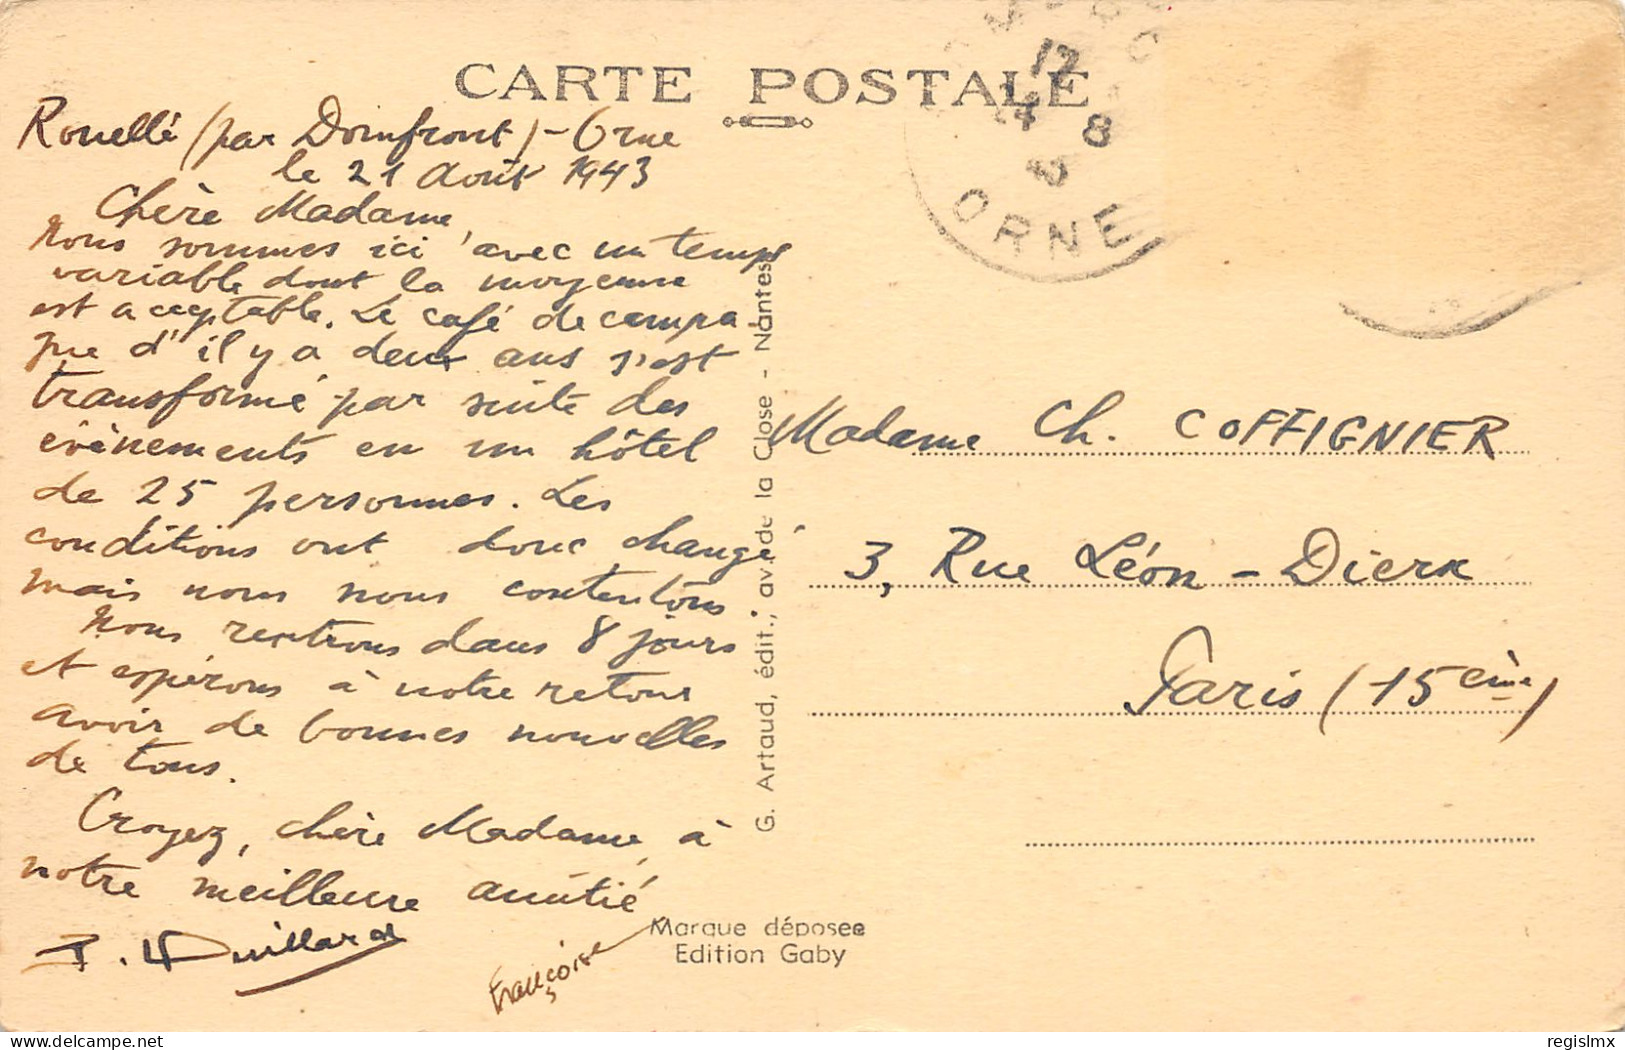 CARTE POSTALE
Rouellé (par Domfront) - Orne
le 21 Août 1943
Chère Madame,
Nous sommes ici avec un temps
variable dont la moyenne
est acceptable. Le café de campa
gne d'il y a deux ans s'est
transformé par suite des
évènements en un hôtel
de 25 personnes. Les
conditions ont donc changé
mais nous nous contentons.
Nous rentrons dans 8 jours
et espérons à notre retour
avoir de bonnes nouvelles
de tous.
Croyez, chère Madame, à
notre meilleure amitié
Françoise
G. Artaud, édit., av. de la Close - Nantes
Marque déposée
Edition Gaby
12
24 8
ORNE
Madame Ch. COFFIGNIER
3, Rue Léon-Dierx
Paris (15ème)
regislmx